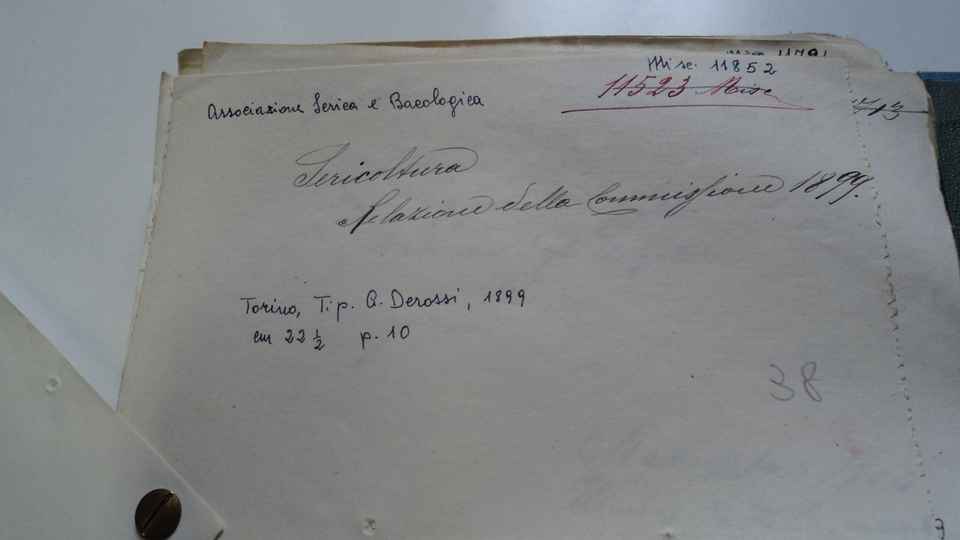 Misc. 11852
11523 Misc
Associazione Serica e Bacologica
Sericoltura
Relazione della Commissione 1899.
Torino, Tip. G. Derossi, 1899
cm 22 ½ p. 10
38